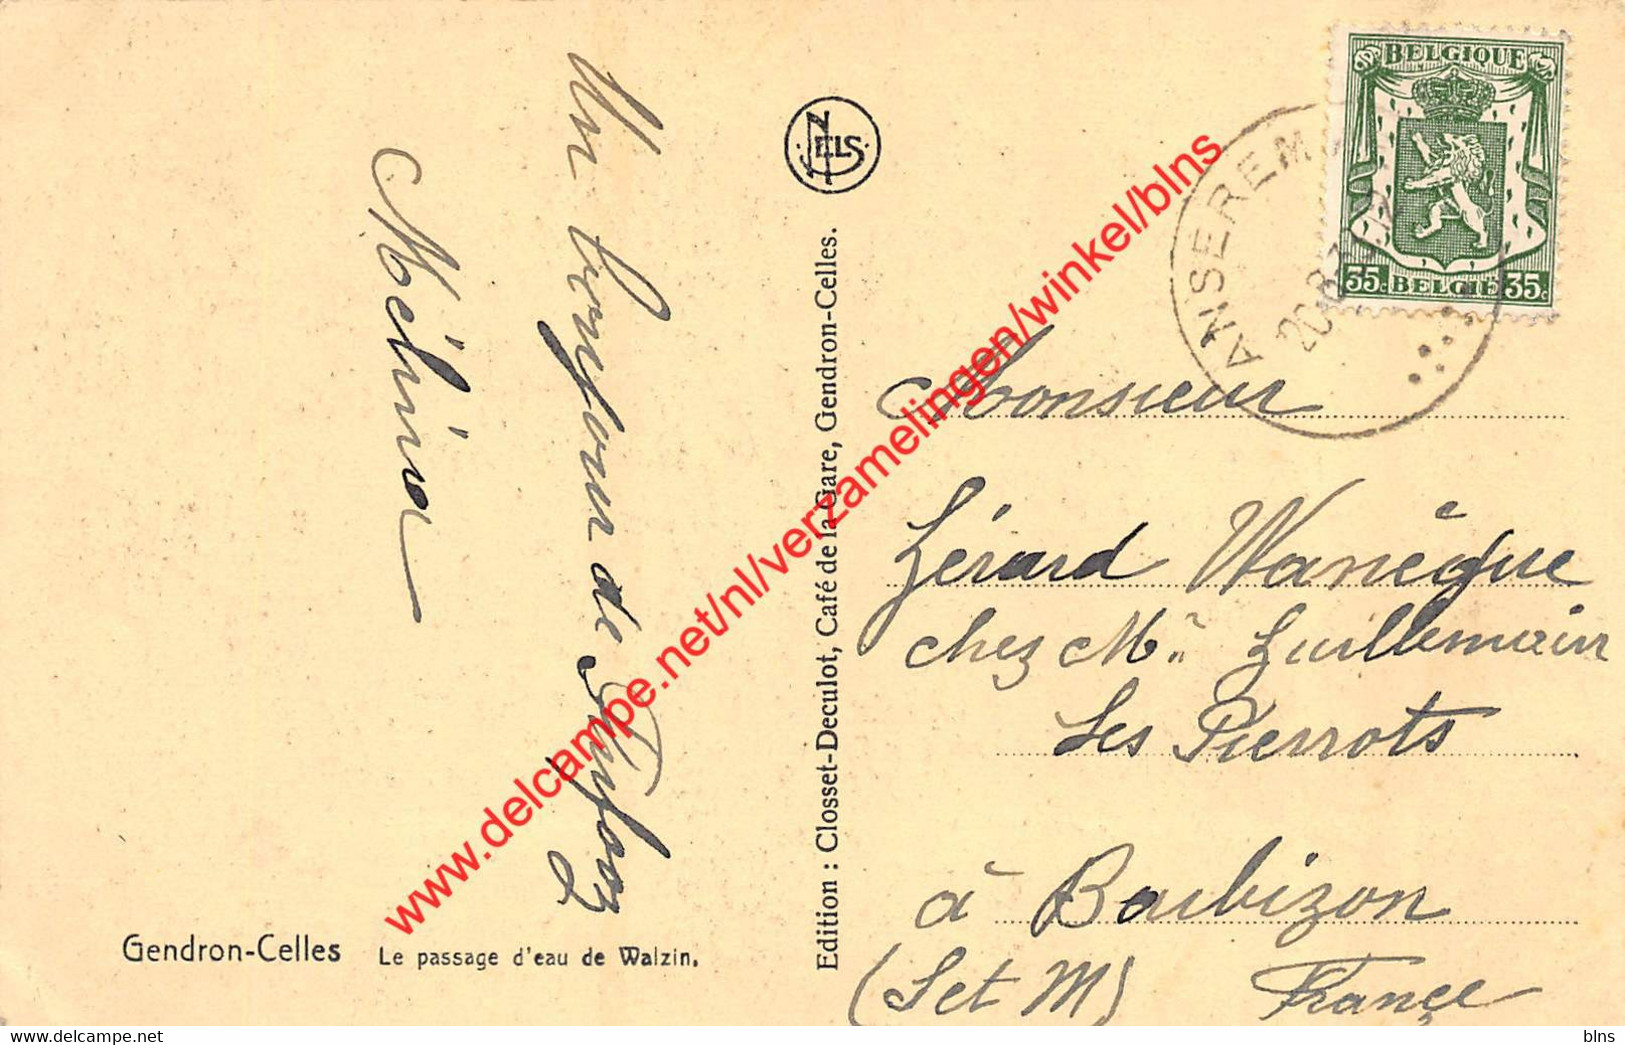 Un bonjour de Furfooz
Mélina
NELS
Edition : Closset-Deculot, Café de la Gare, Gendron-Celles.
Gendron-Celles Le passage d'eau de Walzin.
BELGIQUE
35c BELGIË 35c
ANSEREM
Monsieur
Gérard Wanègue
chez Mr Guillemain
Les Pierrots
à Barbizon
(S et M) France
www.delcampe.net/nl/verzamelingen/winkel/blns
blns